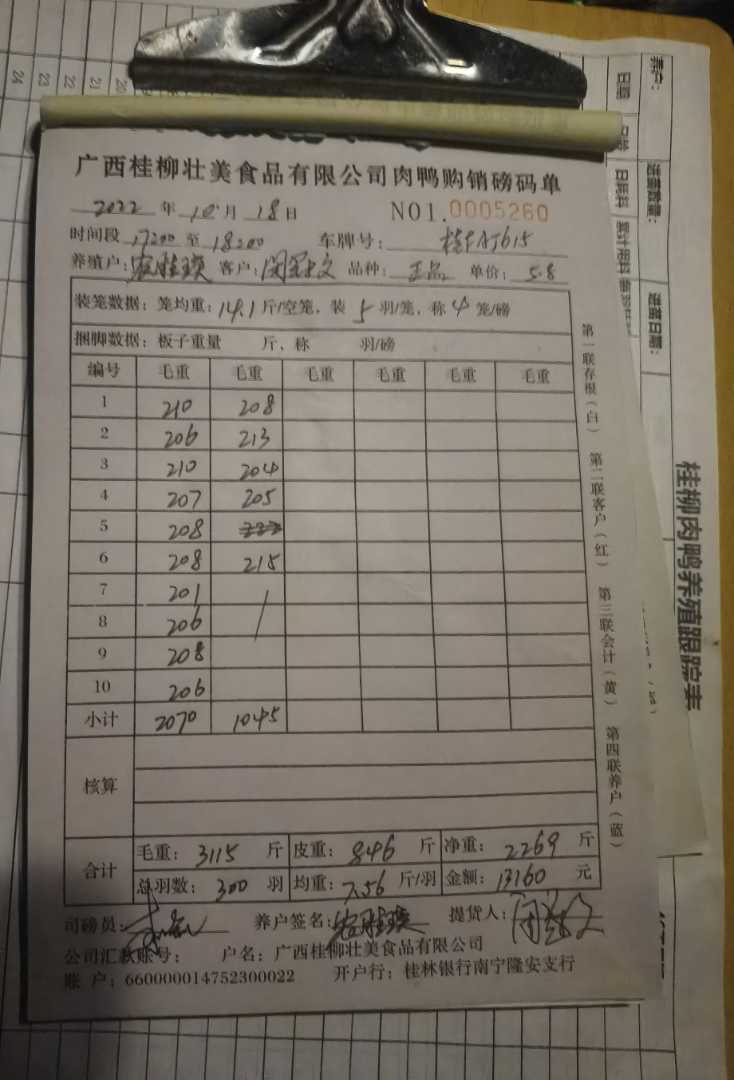 广西桂柳壮美食品有限公司肉鸭购销磅码单
2022 年 10 月 18 日 NO1.0005260
时间段 17:00 至 18:00 车牌号：
养殖户： 客户： 品种：正品 单价：5.8
装笼数据：笼均重：14.1 斤/空笼，装 5 羽/笼，称 4 笼/磅
捆脚数据：板子重量 斤、称 羽/磅
编号 毛重 毛重 毛重 毛重 毛重 毛重
1 210 208
2 206 213
3 210 204
4 207 205
5 208
6 208 215
7 201
8 206
9 208
10 206
小计 2070 1045
核算
合计
毛重：3115 斤 皮重：846 斤 净重：2269 斤
总羽数：300 羽 均重：7.56 斤/羽 金额：13160 元
司磅员： 养户签名： 提货人：
公司汇款账号： 户名：广西桂柳壮美食品有限公司
账 户：660000014752300022 开户行：桂林银行南宁隆安支行
第一联存根（白） 第二联客户（红） 第三联会计（黄） 第四联养户（蓝）
桂柳肉鸭养殖跟踪表
养户：
进苗数量：
进苗日期：
日期
日耗料
累计用料
24
23
22
21
20